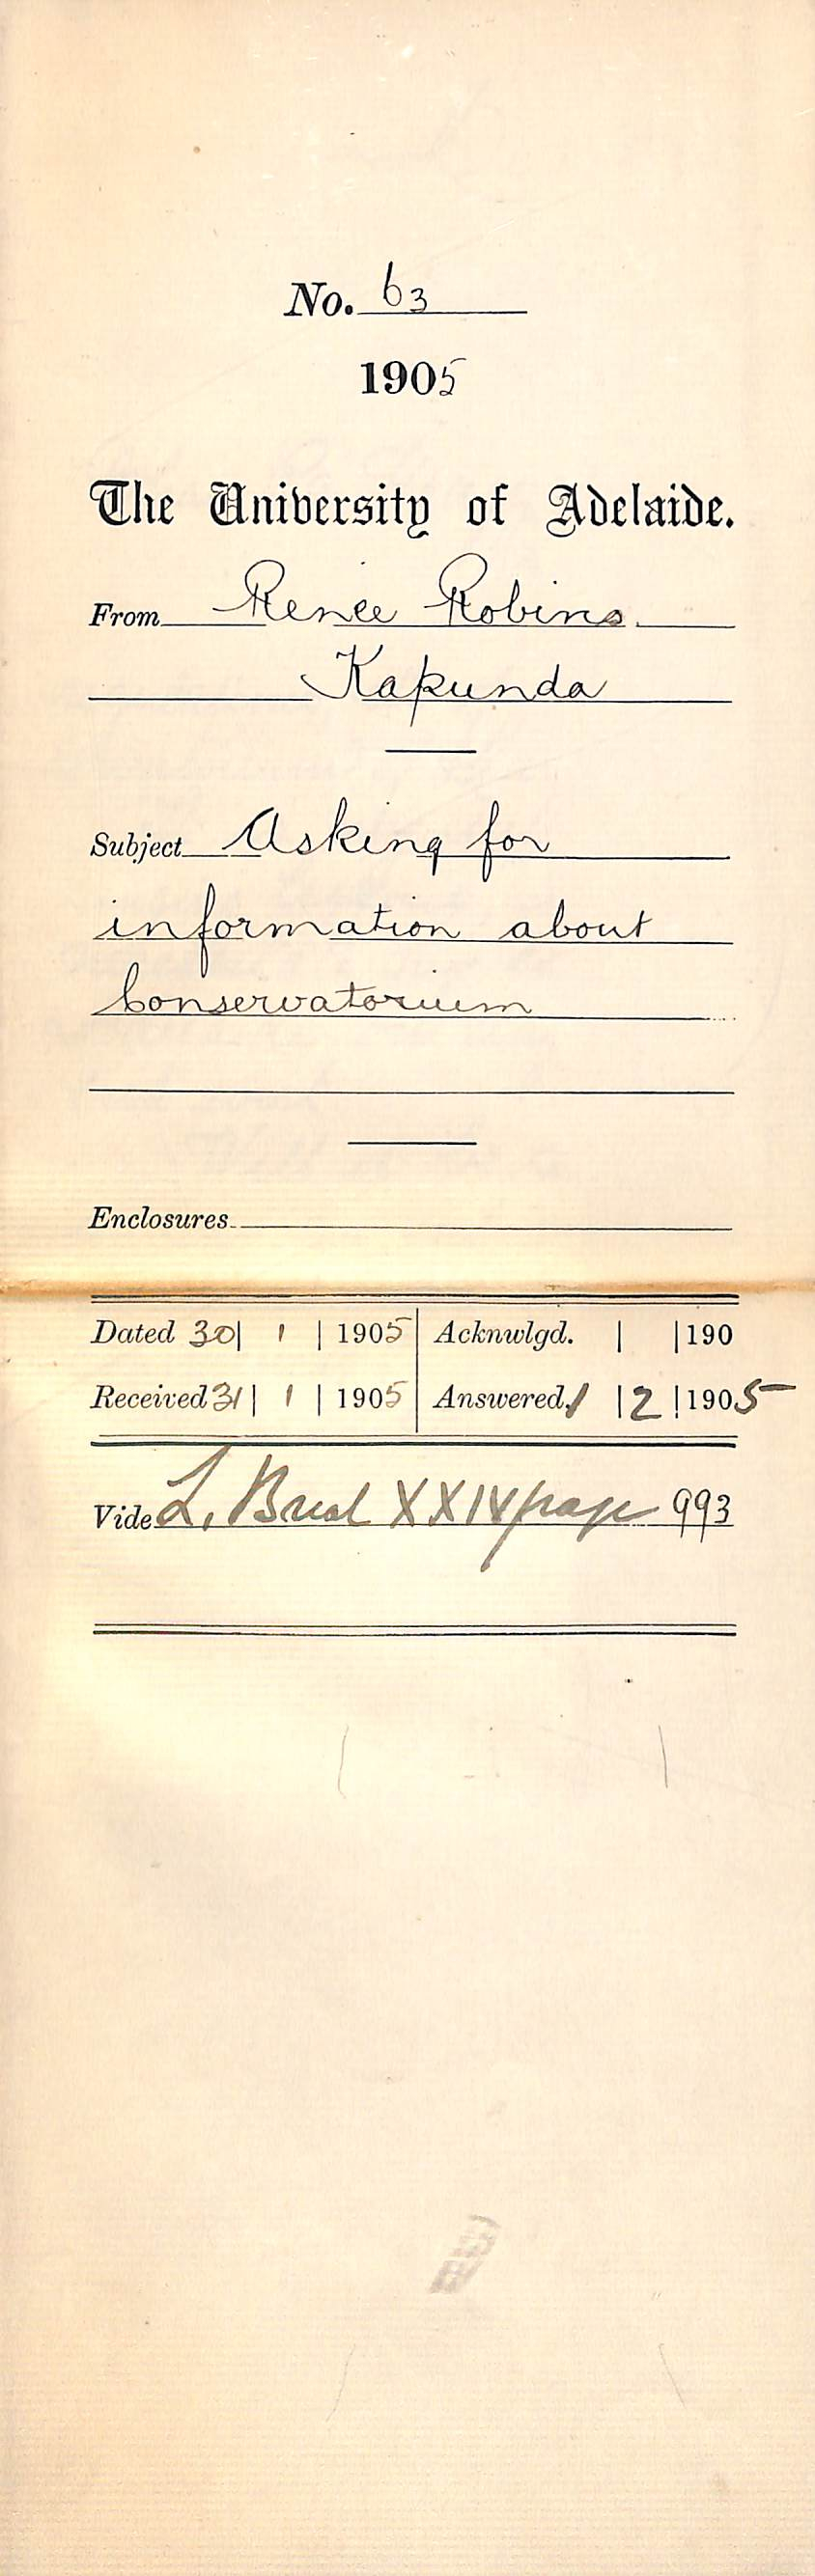 No. 63
1905
The University of Adelaide.
From Renee Robins.
Kapunda
Subject Asking for
information about
Conservatorium
Enclosures
Dated 30| 1 | 1905 Acknwlgd. | |190
Received 31| 1 | 1905 Answered 1 |2|1905
Vide L. XXIV page 993